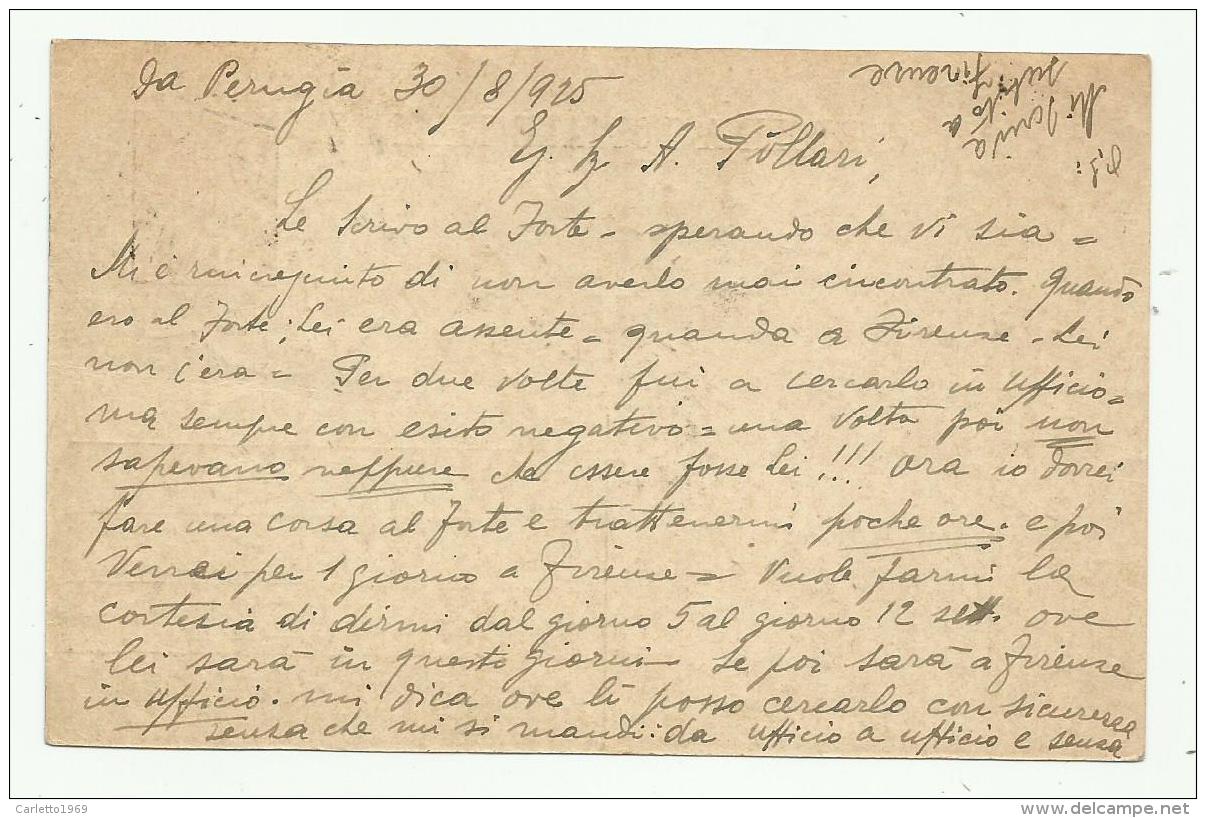 Da Perugia 30/8/925
A. Pollari,
Le scrivo al Forte - sperando che vi sia =
Mi è rincresciuto di non averlo mai incontrato. Quando
ero al Forte; Lei era assente = quando a Firenze - Lei
non c'era = Per due volte fui a cercarlo in ufficio =
ma sempre con esito negativo = una volta poi non
sapevano neppure che essere fosse Lei!!! Ora io dovrei
fare una corsa al Forte e trattenermi poche ore. e poi
Verrei per 1 giorno a Firenze = Vuole farmi la
cortesia di dirmi dal giorno 5 al giorno 12 sett. ove
lei sarà in questi giorni - Se poi sarà a Firenze
in ufficio. mi dica ove lì posso cercarlo con sicurezza
senza che mi si mandi: da ufficio a ufficio e senza
Mi scriva
subito a
Firenze
Carletto1969
delcampe.net